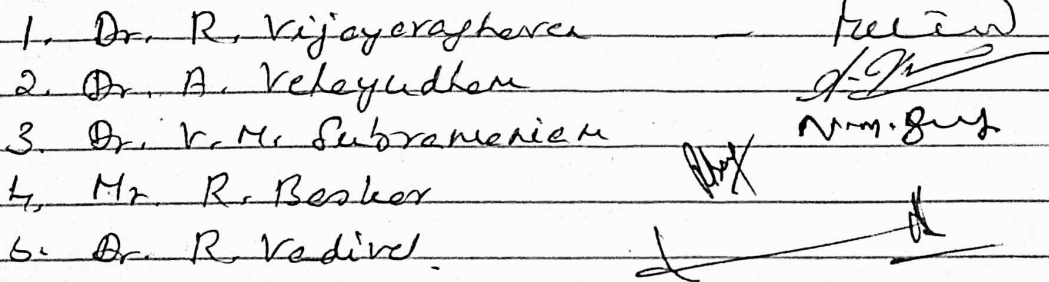 1. Dr. R. Vijayaraghavan –
2. Dr. A. Velayudham
3. Dr. V. M. Subramanian N.m. Sub
4. Mr. R. Baskar
5. Dr. R. Vadivel.